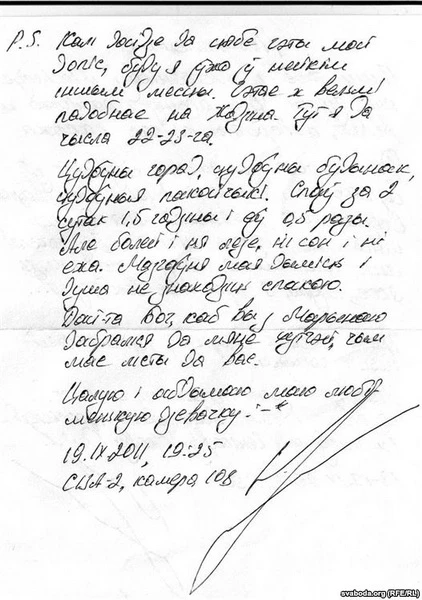 P.S. Калі дойдзе да цябе гэты мой
допіс, буду я ўжо ў нейкім
іншым месцы. Гэтае ж вельмі
падобнае на Жодзіна. Тут я да
чысла 22-23-га.
Цудоўны горад, цудоўны будынак,
цудоўныя пакойчыкі. Спаў за 2
сутак 1,5 гадзіны і еў 0,5 разы.
Але болей і ня лезе, ні сон і ні
ежа. мая і
душа не знаходзяць спакою.
Дай-та Бог, каб вы з Марыяю
дабраліся да мяне хутчэй, чым
мае лісты да вас.
Цалую і абдымаю маю любу
мілую дзевачку :-*
19.IX.2011, 19:25
СИЗА-2, камера 108
svaboda.org (RFE/RL)